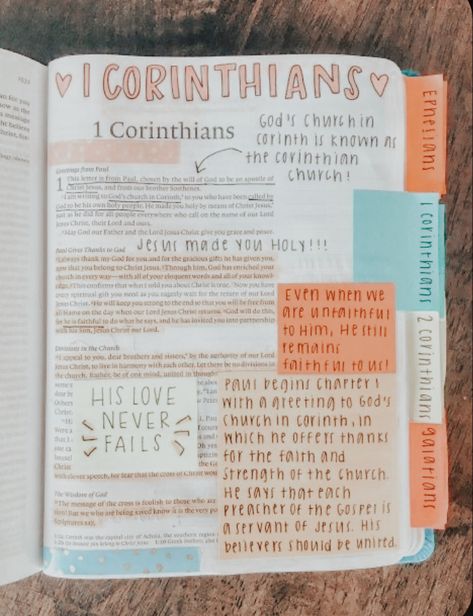 1 CORINTHIANS
1 Corinthians
GOD'S CHURCH IN
CORINTH IS KNOWN AS
THE CORINTHIAN
CHURCH!
Greetings from Paul
1 This letter is from Paul, chosen by the will of God to be an apostle of
Christ Jesus, and from our brother Sosthenes.
I am writing to God's church in Corinth, to you who have been called by
God to be his own holy people. He made you holy by means of Christ Jesus,
just as he did for all people everywhere who call on the name of our Lord
Jesus Christ, their Lord and ours.
May God our Father and the Lord Jesus Christ give you grace and peace.
JESUS MADE YOU HOLY!!!
Paul Gives Thanks to God
I always thank my God for you and for the gracious gifts he has given you,
now that you belong to Christ Jesus. Through him, God has enriched your
church in every way—with all of your eloquent words and all of your knowl-
edge. This confirms that what I told you about Christ is true. Now you have
every spiritual gift you need as you eagerly wait for the return of our Lord
Jesus Christ. He will keep you strong to the end so that you will be free from
all blame on the day when our Lord Jesus Christ returns. God will do this,
for he is faithful to do what he says, and he has invited you into partnership
with his Son, Jesus Christ our Lord.
EVEN WHEN WE
ARE UNFAITHFUL
TO HIM, HE STILL
REMAINS
FAITHFUL TO US!
Divisions in the Church
I appeal to you, dear brothers and sisters, by the authority of our Lord
Jesus Christ, to live in harmony with each other. Let there be no divisions in
the church. Rather, be of one mind, united in thought
HIS LOVE
NEVER
FAILS
PAUL BEGINS CHAPTER 1
WITH A GREETING TO GOD'S
CHURCH IN CORINTH, IN
WHICH HE OFFERS THANKS
FOR THE FAITH AND
STRENGTH OF THE CHURCH.
HE SAYS THAT EACH
PREACHER OF THE GOSPEL IS
A SERVANT OF JESUS. HIS
BELIEVERS SHOULD BE UNITED.
with clever speech, for fear that the cross of Christ wou
The Wisdom of God
The message of the cross is foolish to those who are
But we who are being saved know it is the very po
Scriptures say,
EPHESIANS
1 CORINTHIANS
2 CORINTHIANS
GALATIANS